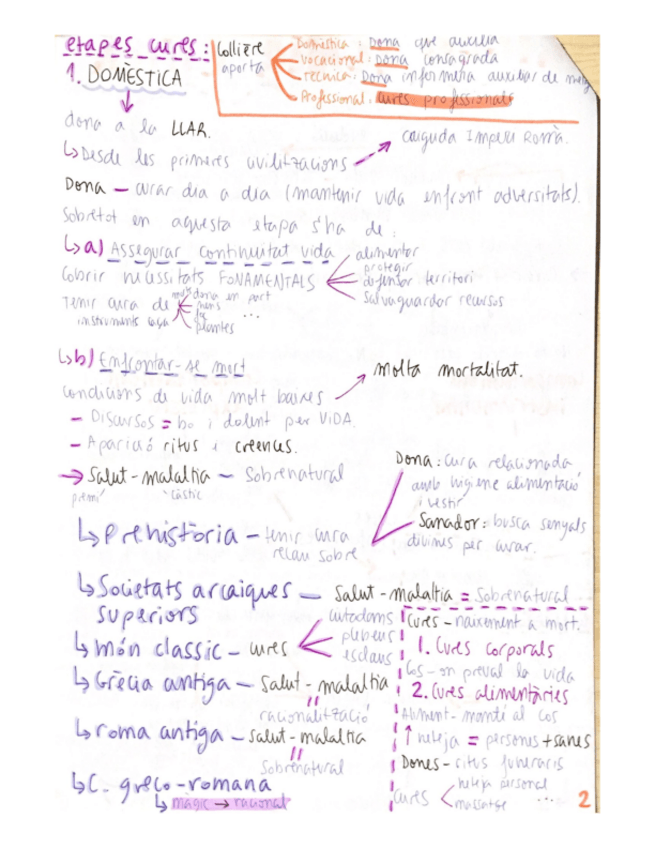 etapes cures:
Collière aporta
Domèstica: Dona que auxilia
Vocacional: Dona consagrada
Tècnica: Dona infermera auxiliar de
Professional: cures professionals
1. DOMÈSTICA
dona a la LLAR.
↳ Desde les primeres civilitzacions → caiguda Imperi Romà.
Dona - curar dia a dia (mantenir vida enfront adversitats).
Sobretot en aquesta etapa s'ha de:
↳ a) Assegurar continuitat vida
Cobrir necessitats FONAMENTALS
alimentar
protegir
defensar territori
salvaguardar recursos
Tenir cura de
dona en part
nens
plantes
...
instruments caça
↳ b) Enfrontar-se mort
Condicions de vida molt baixes → Molta mortalitat.
- Discursos = bo i dolent per VIDA.
- Aparició ritus i creences.
→ Salut-malaltia - Sobrenatural
premi càstic
↳ Prehistòria - tenir cura
recau sobre
Dona: cura relacionada
amb higiene alimentació
i vestir
Sanador: busca senyals
divines per curar.
↳ Societats arcaiques superiors - Salut-malaltia = Sobrenatural
↳ món classic - cures
ciutadans
plebeus
esclaus
↳ Grècia antiga - Salut-malaltia
=
racionalització
↳ roma antiga - Salut-malaltia
=
Sobrenatural
↳ C. greco-romana
↳ màgic → racional
Cures - naixement a mort.
1. Cures corporals
Cos - on preval la vida
2. Cures alimentàries
Aliment - manté al cos
↑ neteja = persones + sanes
Dones - ritus funeraris
Cures
neteja personal
massatge ...
2